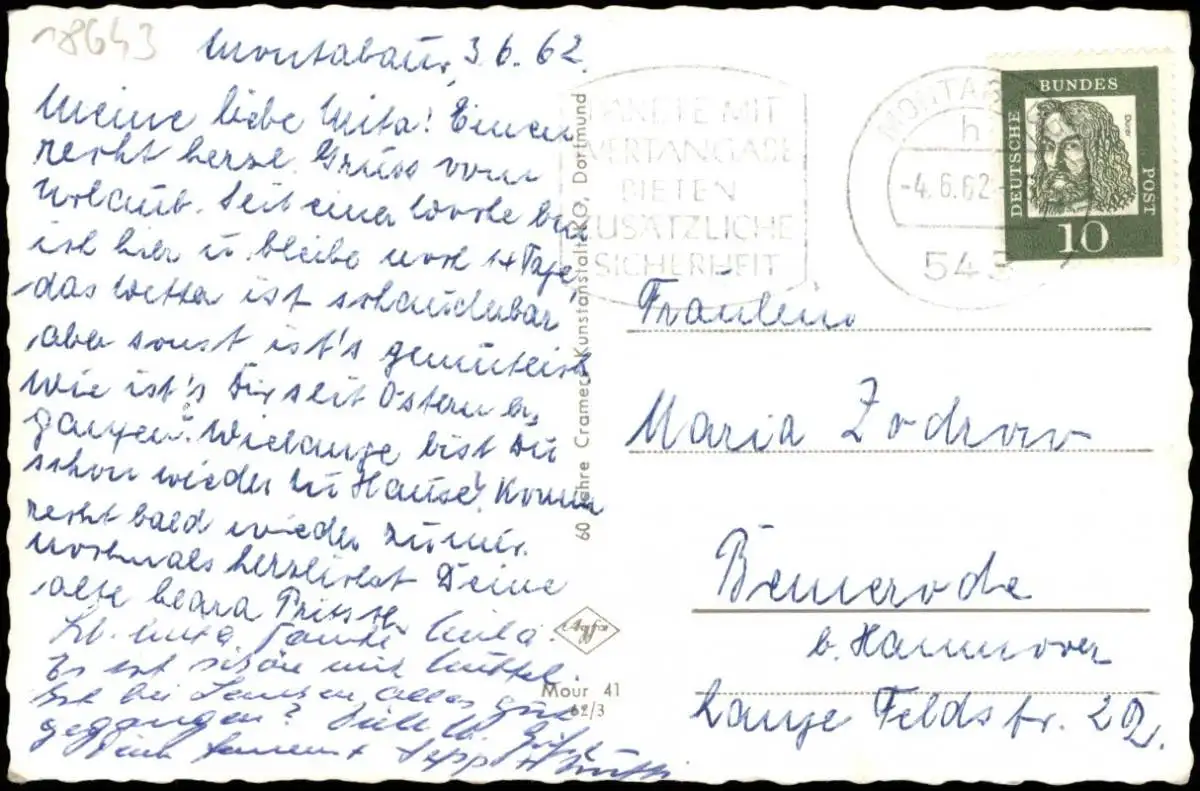 18643
Montabaur, 3.6.62.
Meine liebe Mita! Einen
recht herzl. Gruss vom
Urlaub. Seit einer Woche bin
ich hier u. bleibe noch 14 Tage,
das Wetter ist schauderbar
aber sonst ist's gemütlich
Wie ist's Dir seit Ostern er-
gangen? Wielange bist Du
schon wieder zu Hause? Komm
recht bald wieder zu mir.
Nochmals herzlichst Deine
alte
Es ist schön mit
Ist bei alles gut
gegangen?
Sepp +
60 Jahre Cramers Kunstanstalt KG, Dortmund
Agfa
Mour 41
62/3
PAKETE MIT
WERTANGABE
BIETEN
ZUSÄTZLICHE
SICHERHEIT
MONTABAUR
h
-4.6.62-
543
DEUTSCHE
BUNDES
POST
Dürer
10
Fräulein
Maria Zodrow
Bemerode
b. Hannover
Lange Feldstr.